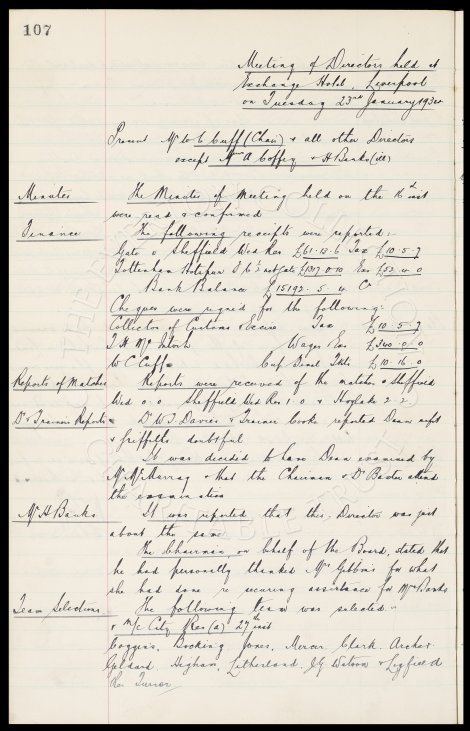 107
Meeting of Directors held at
Exchange Hotel, Liverpool
on Tuesday 23rd January 1934
Present Mr W C Cuff (Chair) & all other Directors
except Mr A Coffey & H Banks (ill)
Minutes The Minutes of Meeting held on the 16th inst
were read & confirmed
Finance The following receipts were reported:-
Gate v Sheffield Wed Res £61.13.6 Tax £10.5.7
Tottenham Hotspur £52.4.0
Bank Balance £15192.5.4 Cr
Cheques were signed for the following:-
Collector of Customs & Excise Tax £10.5.7
T H McIntosh Wages &c £340.0.0
W C Cuff Cup Final Tkts £10.16.0
Reports of Matches Reports were received of the matches v Sheffield
Wed 0.0 Sheffield Wed Res 1.0 & Hoylake 2.2
Dr & Trainers Reports Dr W J Davies & Trainer Cooke reported Dean unfit
& Griffiths doubtful
It was decided to have Dean examined by
Mr McMurray & that the Chairman & Dr Baxter attend
the examination
Mr H Banks It was reported that this Director was just
about the same
The Chairman, on behalf of the Board, stated that
he had personally thanked Mrs Gibbins for what
she had done re securing assistance for Mrs Banks
Team Selections The following team was selected:-
v M/c City Res (a) 27th inst
Coggins, Bocking Jones, Mercer Clark Archer
Geldard Higham, Litherland, J G Watson &
Res Turner